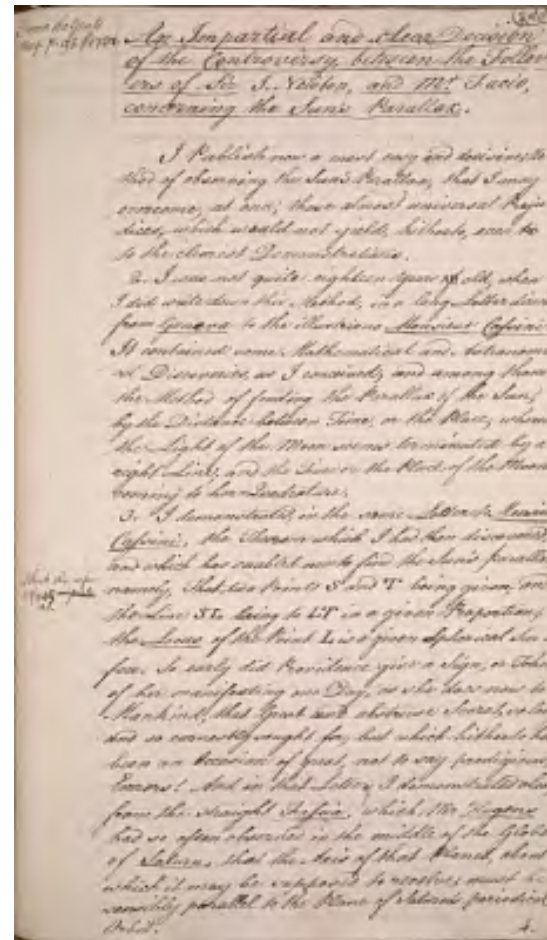 An Impartial and clear Decision
of the Controversy, between the Follow
ers of Sir I. Newton, and Mr. Facio,
concerning the Sun's Parallax.
I Publish now a most easy and decisive Me
thod of observing the Sun's Parallax, that I may
overcome, at once, those almost universal Preju
dices, which would not yield, hitherto, even
to the clearest Demonstrations.
2. I was not quite eighteen years old, when
I did write down this Method, in a long Letter
from Geneva to the illustrious Monsieur Cassini
It contained some Mathematical and Astronomi
cal Discoveries, as I conceived; and among them
the Method of finding the Parallax of the Sun,
by the Distance between Time, or the Place, where
the Light of the Moon seems terminated by a
right Line, and the Time or the Place of the Moon
coming to her Quadrature.
3. I demonstrated, in the same Letter to
Cassini, the Theorem which I had then discovered,
and which has enabled me to find the Sun's Parallax
namely, That two Points S and T being given, an
the Line SL being to LT in a given Proportion;
the Locus of the Point L is a given Spherical Sur
face. So early did Providence give a Sign, or Token
of her manifesting one Day, as she does now to
Mankind, that Great and abstruse Secret,
and so earnestly sought for, but which hitherto
been an Occasion of great, not to say prodigious
Errors! And in that Letter, I demonstrated also
from the straight Fascia, which Mr. Hugens
had so often observed in the middle of the Globe
of Saturn, that the Axis of that Planet, about
which it may be supposed to revolve, must be
sensibly parallel to the Plane of Saturn's periodical
Orbit.
4.